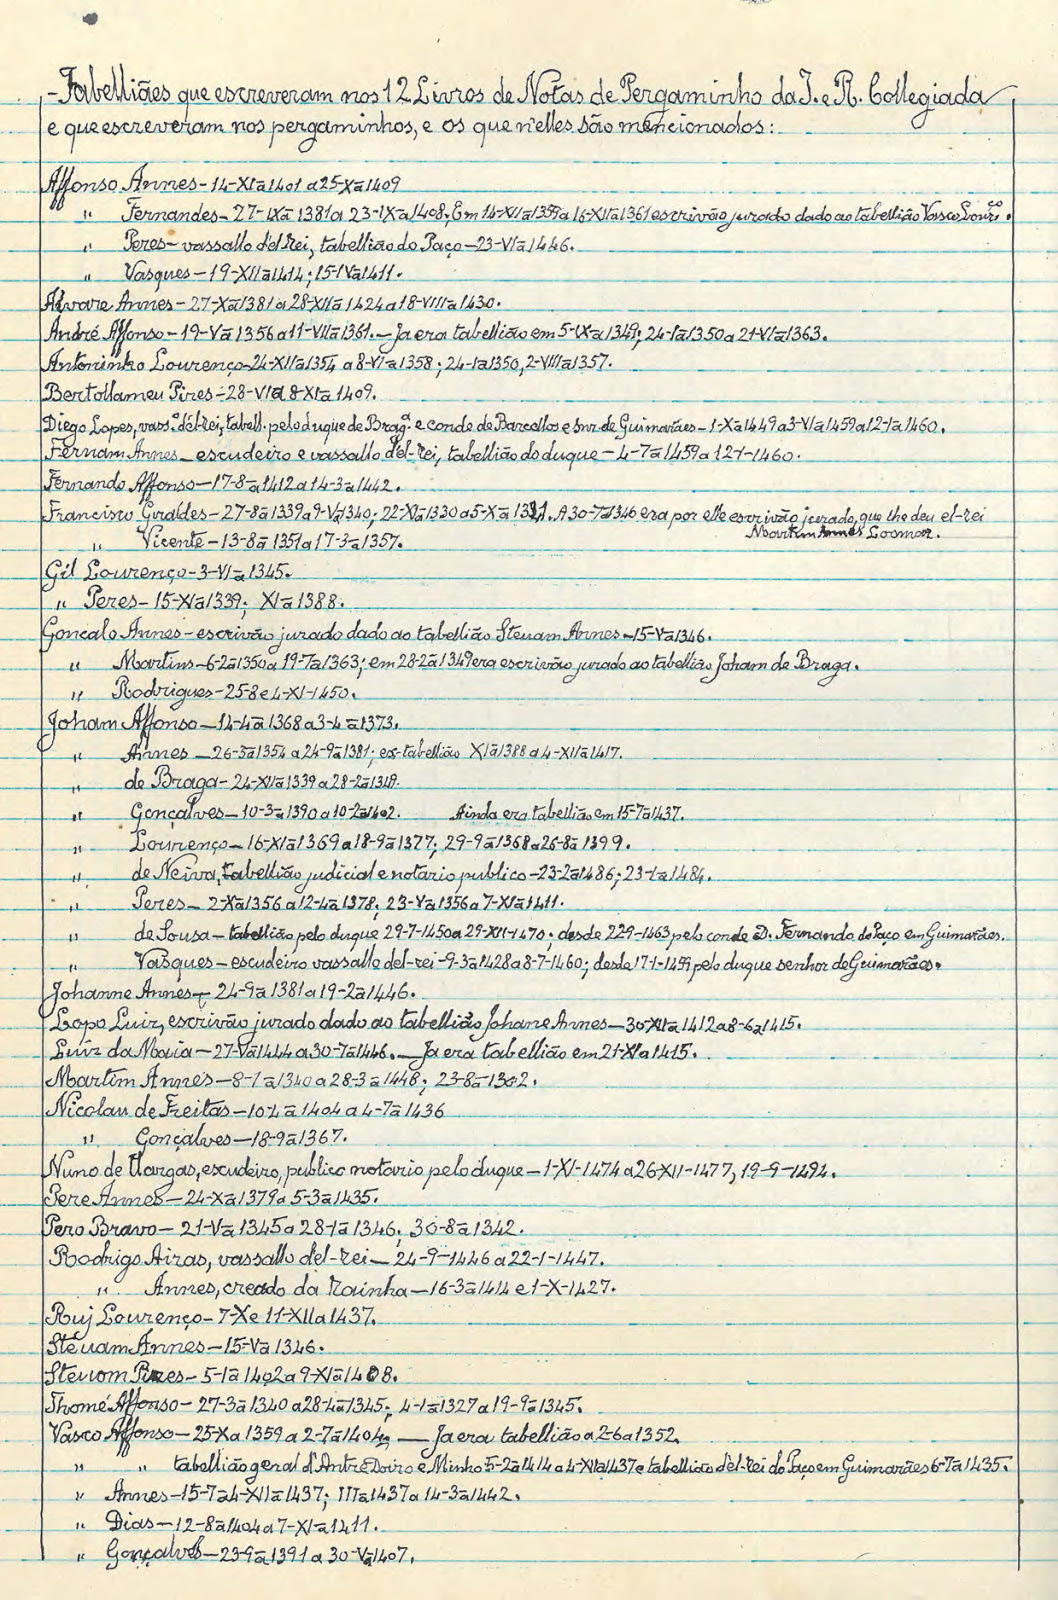 -Tabelliães que escreveram nos 12 Livros de Notas de Pergaminho da I. e R. Collegiada
e que escreveram nos pergaminhos, e os que n'elles são mencionados:
Affonso Annes-14-XI ā 1401 a 25-X ā 1409
" Fernandes-27-IX ā 1381 a 23-IX ā 1408. Em 14-XII ā 1359 a 16-XII ā 1361 escrivão jurado dado ao tabellião Vasco Lourº.
" Peres-vassallo d'el rei, tabellião do Paço-23-VI ā 1446.
" Vasques-19-XII ā 1414; 15-IV ā 1411.
Alvare Annes-27-X ā 1381 a 28-XII ā 1424 a 18-VIII ā 1430.
André Affonso-19-V ā 1356 a 11-VII ā 1361.-Ja era tabellião em 5-IX ā 1349; 24-I ā 1350 a 21-VI ā 1363.
Antoninho Lourenço-24-XII ā 1354 a 8-VI ā 1358; 24-I ā 1350, 2-VIII ā 1357.
Bertollameu Pires-28-VI a 8-XI ā 1409.
Diego Lopes, vass.º d'el-rei, tabell. pelo duque de Brag.ª e conde de Barcellos e Snr. de Guimarães-1-X ā 1449 a 3-VI ā 1459 a 12-I ā 1460.
Fernam Annes-escudeiro e vassallo d'el-rei, tabellião do duque-4-7 ā 1459 a 12-1-1460.
Fernando Affonso-17-8 ā 1412 a 14-3 ā 1442.
Francisco Giraldes-27-8 ā 1339 a 9-V ā 1340; 22-XI ā 1330 a 5-X ā 1331. A 30-7 ā 1346 era por elle escrivão jurado, que lhe deu el-rei
Martim Annes
" Vicente-13-8 ā 1351 a 17-3 ā 1357.
Gil Lourenço-3-VI ā 1345.
" Peres-15-XI ā 1339; XI ā 1388.
Goncalo Annes-escrivão jurado dado ao tabellião Stevam Annes-15-V ā 1346.
" Martins-6-2 ā 1350 a 19-7 ā 1363; em 28-2 ā 1349 era escrivão jurado ao tabellião Joham de Braga.
" Rodrigues-25-8 e 4-XI-1450.
Joham Affonso-14-4 ā 1368 a 3-4 ā 1373.
" Annes-26-3 ā 1354 a 24-9 ā 1381; ex-tabellião XI ā 1388 a 4-XII ā 1417.
" de Braga-24-XII ā 1339 a 28-2 ā 1349.
" Gonçalves-10-3 ā 1390 a 10-2 ā 1402. Ainda era tabellião em 15-7 ā 1437.
" Lourenço-16-XI ā 1369 a 18-9 ā 1377; 29-9 ā 1368 a 26-8 ā 1399.
" de Neiva, tabellião judicial e notario publico-23-2 ā 1486; 23-1 ā 1484.
" Peres-2-X ā 1356 a 12-4 ā 1378; 23-V ā 1356 a 7-XI ā 1411.
" de Sousa-tabellião pelo duque 29-7-1450 a 29-XII-1470; desde 22-9-1463 pelo conde D. Fernando do Paço em Guimarães.
" Vasques-escudeiro vassallo d'el-rei-9-3 ā 1428 a 8-7-1460; desde 17-1-1459 pelo duque senhor de Guimarães.
Johanne Annes-24-9 ā 1381 a 19-2 ā 1446.
Lopo Luiz, escrivão jurado dado ao tabellião Johane Annes-30-XII ā 1412 a 8-6 ā 1415.
Luiz da Maia-27-V ā 1444 a 30-7 ā 1446.-Ja era tabellião em 21-XI ā 1415.
Martim Annes-8-1 ā 1340 a 28-3 ā 1448; 23-8 ā 1302.
Nicolau de Freitas-10-4 ā 1404 a 4-7 ā 1436
" Gonçalves-18-9 ā 1367.
Nuno de Vargas, escudeiro, publico notario pelo duque-1-XI-1474 a 26-XII-1477, 19-9-1494.
Pere Annes-24-X ā 1379 a 5-3 ā 1435.
Pero Bravo-21-V ā 1345 a 28-1 ā 1346; 30-8 ā 1342.
Rodrigo Airas, vassallo del-rei-24-9-1446 a 22-1-1447.
" Annes, creado da Rainha-16-3 ā 1414 e 1-X-1427.
Ruj Lourenço-7-X e 11-XII ā 1437.
Stevam Annes-15-V ā 1346.
Stevom Pires-5-1 ā 1402 a 9-XI ā 1408.
Thomé Affonso-27-3 ā 1340 a 28-4 ā 1345; 4-1 ā 1327 a 19-9 ā 1345.
Vasco Affonso-25-X a 1359 a 2-7 ā 1404;-Ja era tabellião a 2-6 ā 1352.
" " tabellião geral d'Antre Doiro e Minho 5-2 ā 1414 a 4-XII ā 1437 e tabellião d'el-rei do Paço em Guimarães 6-7 ā 1435.
" Annes-15-7 a 4-XII ā 1437; III ā 1437 a 14-3 ā 1442.
" Dias-12-8 ā 1404 a 7-XI ā 1411.
" Gonçalves-23-9 ā 1391 a 30-V ā 1407.